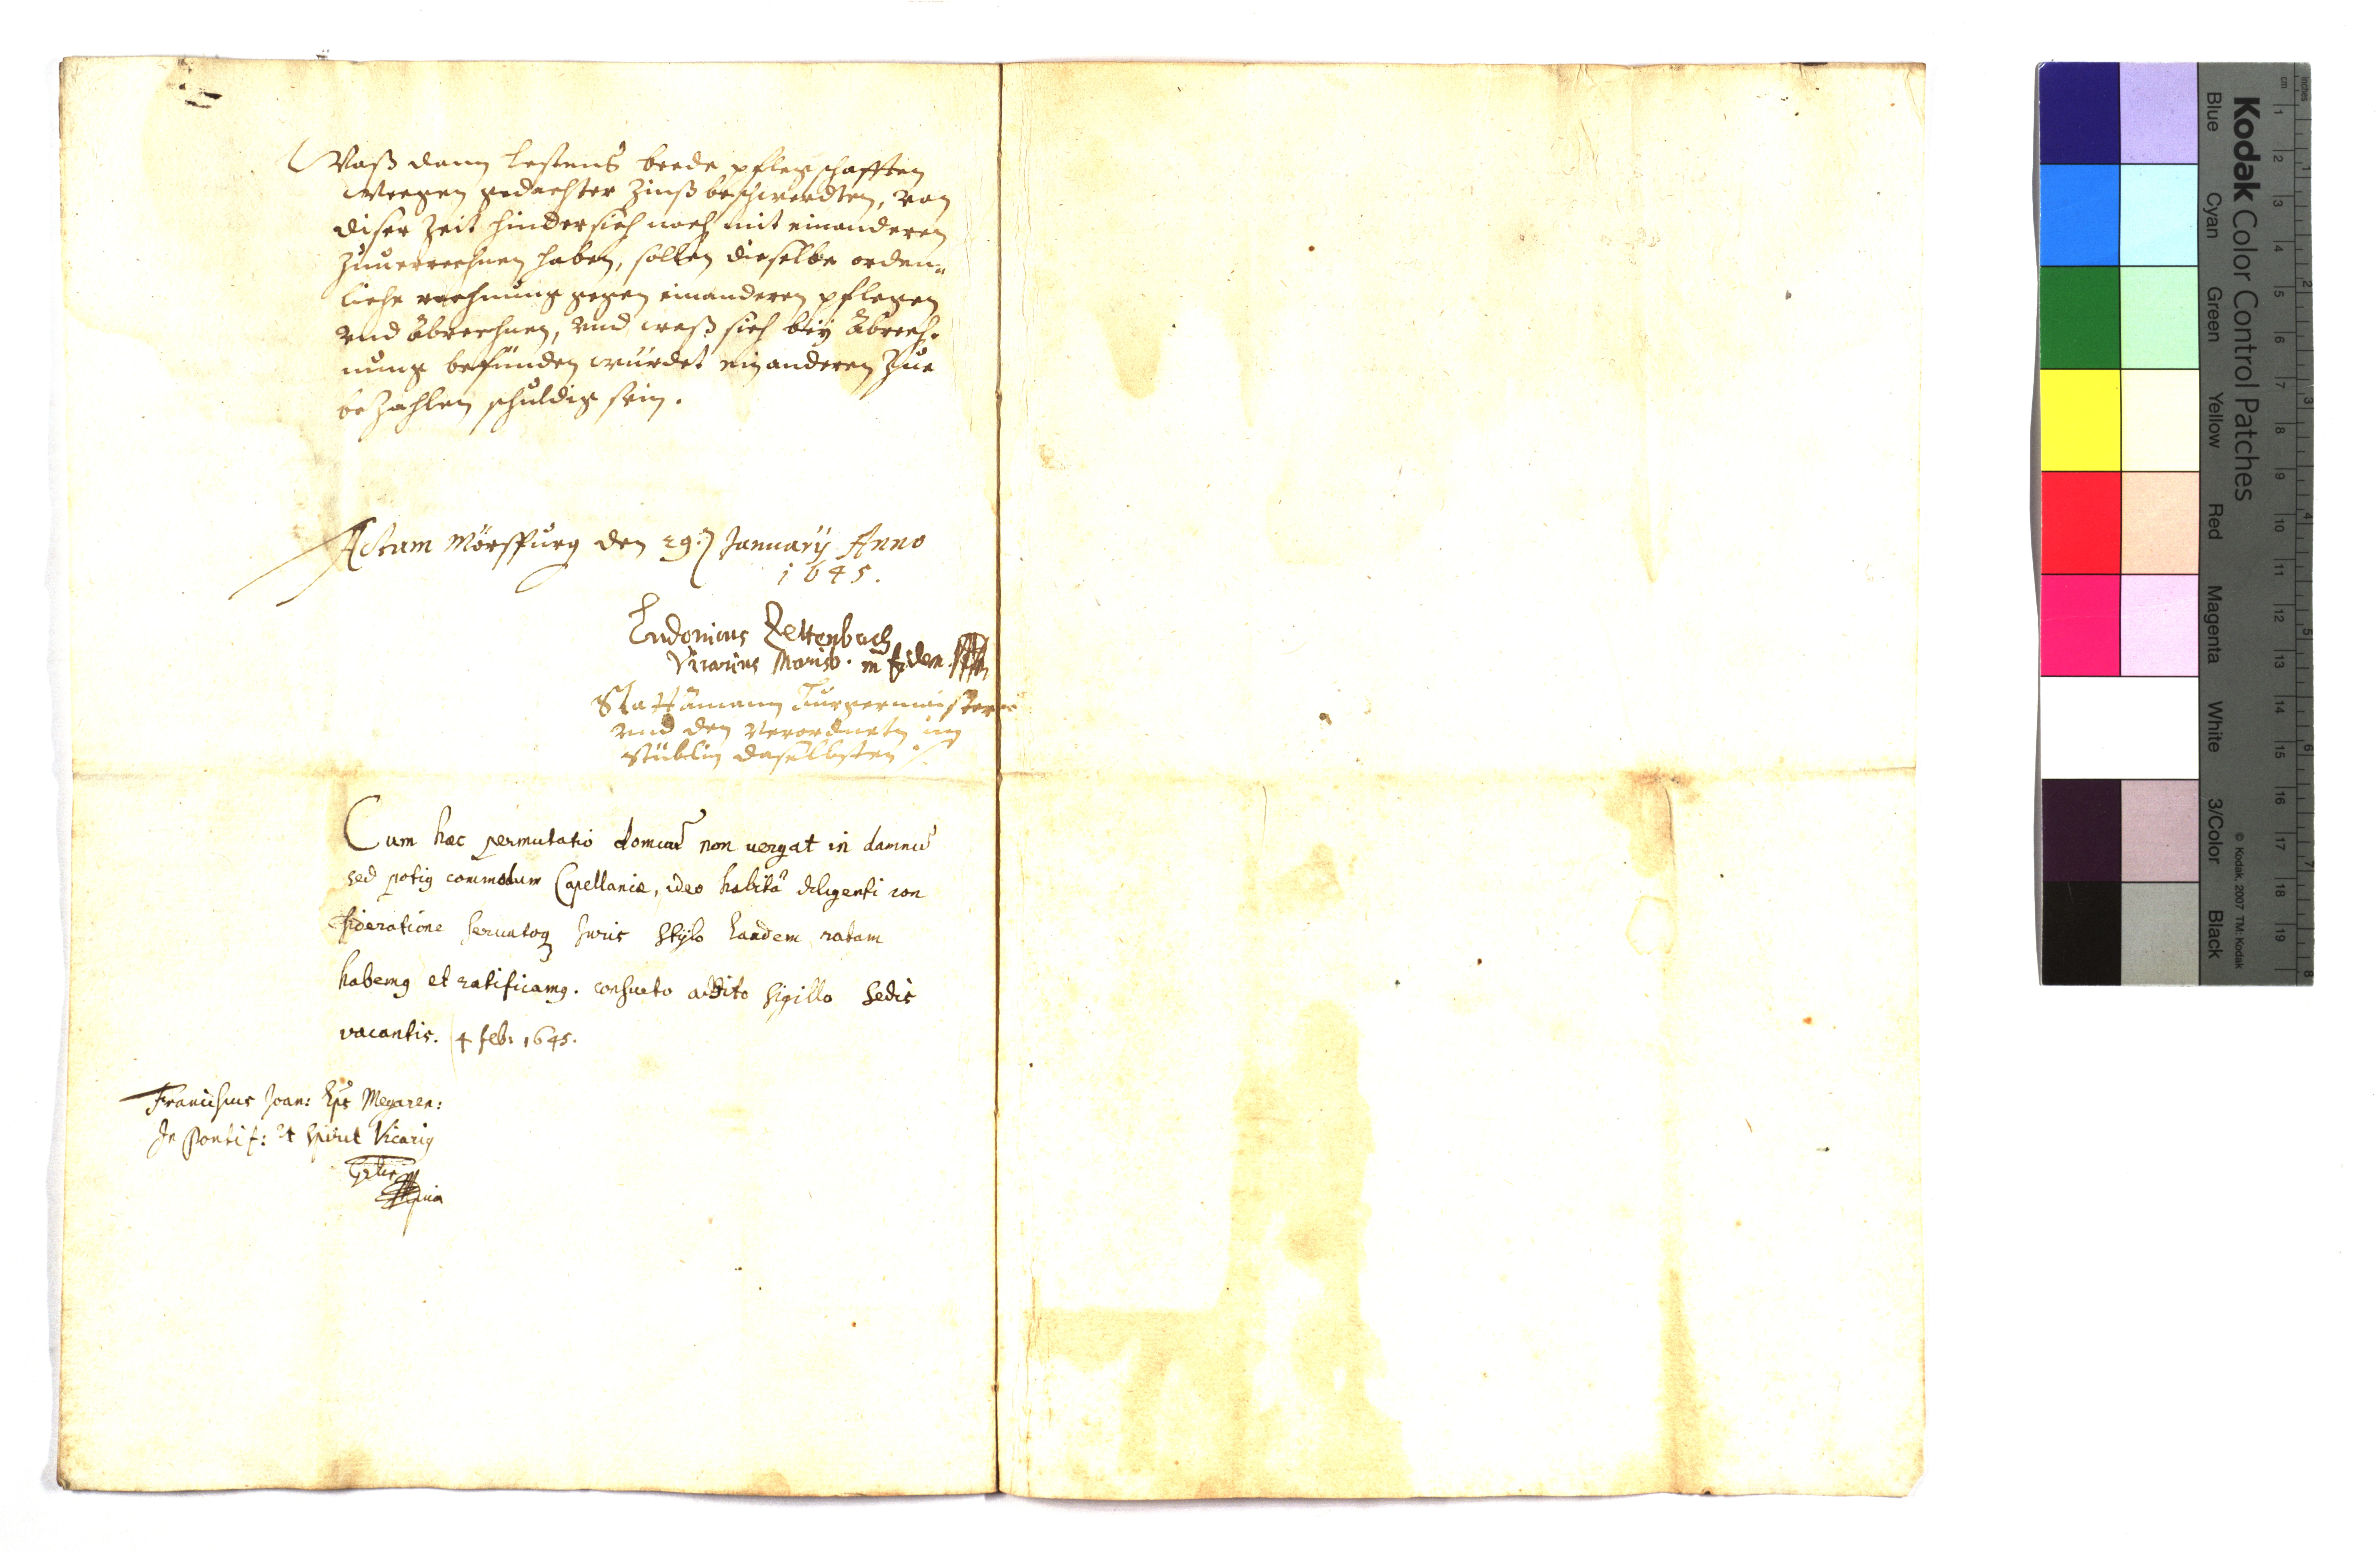 Waß dann lestens beede pflegschafften
wegen gedachter Zinß beschwerdten, von
diser Zeit hindersich noch mit einanderen
Zuuerrechnen haben, sollen dieselbe orden=
liche rechnung gegen einanderen pflegen
vnd abrechnen, vnd waß sich bey abrech=
nung befünden würdet ein anderen Zue
beZahlen schuldig sein.
Actum Mörspurg den 29: January Anno
1645.
Ludouicus Rettenbach
Vicarius Morisb. in fidem
Stattamann Burgermaister
vnd den Verordneten im
Stüblin daselbsten
Cum hæc permutatio domus non uergat in damnū
sed potius commodum Capellaniæ, ideo habitâ diligenti con
sideratione seruatoq Juris Stylo Eandem ratam
habemus et ratificamus. consueto addito sigillo Sedis
vacantis. 4 feb: 1645.
Franciscus Joan: Eps Megaren:
In Pontif: et spirit Vicarius
Gnlis
Kodak Color Control Patches
Blue Cyan Green Yellow Red Magenta White 3/Color Black
© Kodak, 2007 TM: Kodak
inches 1 2 3 4 5 6 7 8
cm 1 2 3 4 5 6 7 8 9 10 11 12 13 14 15 16 17 18 19